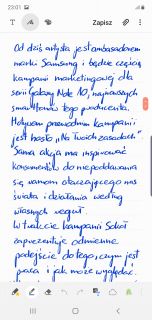 23:01
81%
Zapisz
Od dziś artysta jest ambasadorem
marki Samsung i będzie częścią
kampanii marketingowej dla
serii Galaxy Note 10, najnowszych
smartfonów tego producenta.
Motywem przewodnim kampanii
jest hasło „Na Twoich zasadach".
Sama akcja ma inspirować
konsumentów do niepoddawania
się ramom otaczającego nas
świata i działania według
własnych reguł.
W trakcie kampanii Sokół
zaprezentuje odmienne
podejście do tego, czym jest
praca i jak może wyglądać.